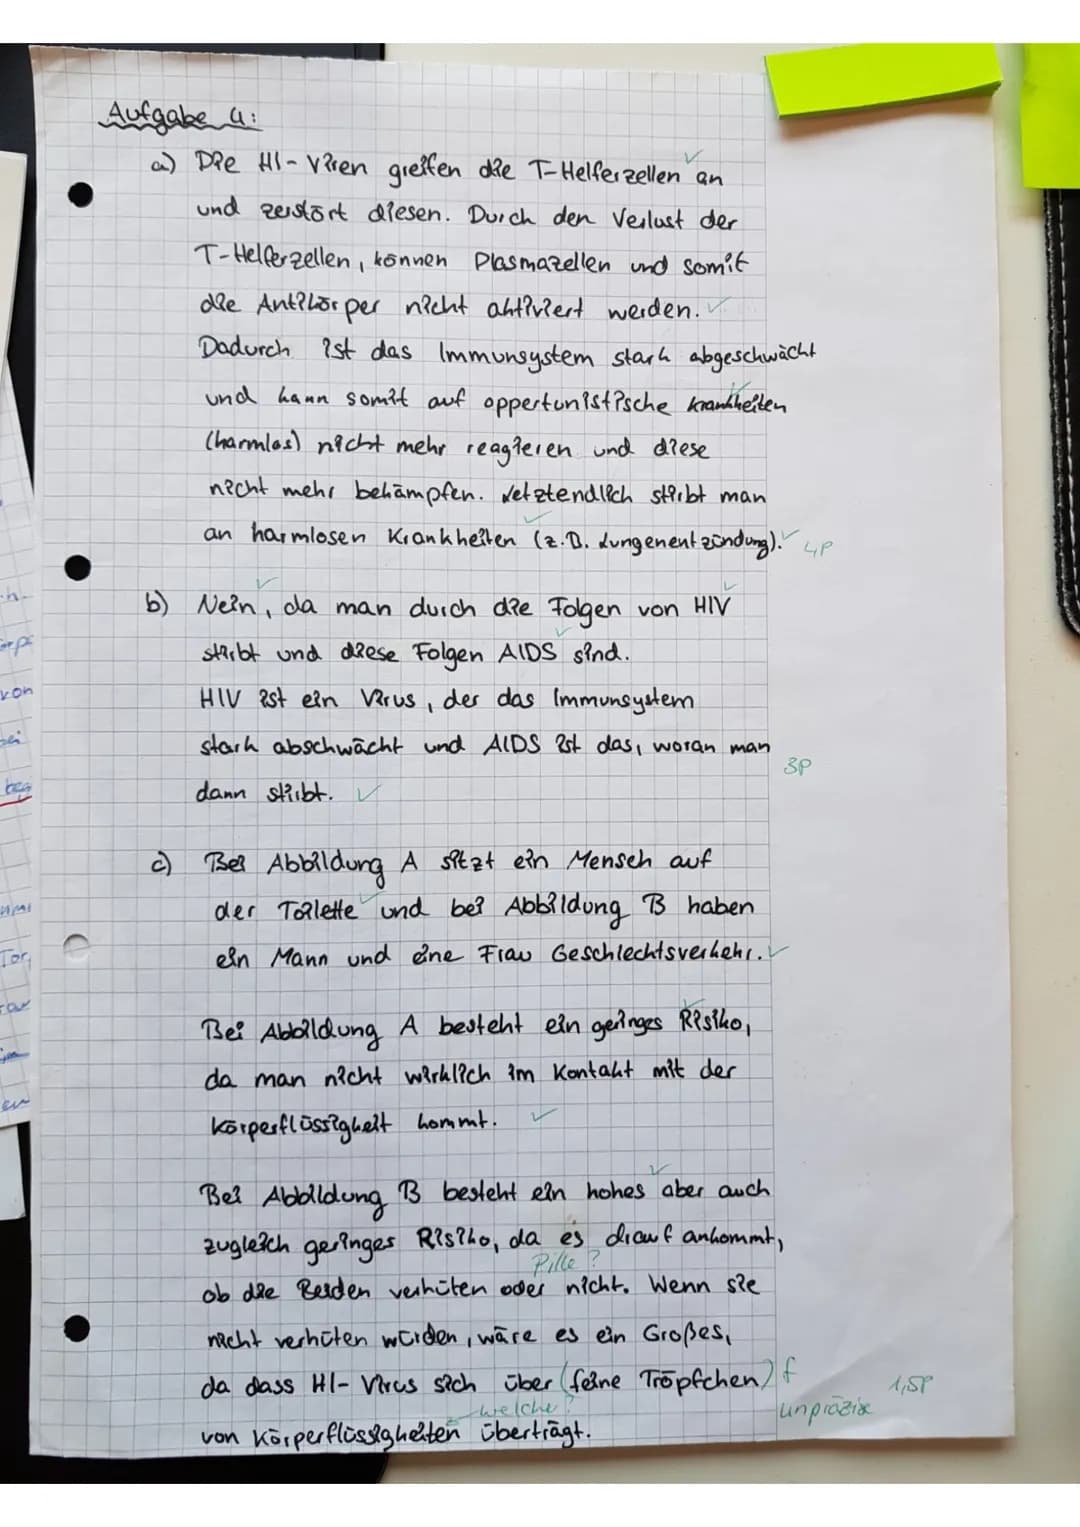 Aufgabe 4:
a) Die HI-Viren greifen die T-Helferzellen an
und zerstört diesen. Durch den Verlust der
T-Helferzellen, können Plasmazellen und somit
die Antikörper nicht aktiviert werden.
Dadurch ist das Immunsystem stark abgeschwächt
und kann somit auf oppertunistische Krankheiten
(harmlos) nicht mehr reagieren und diese
nicht mehr bekämpfen. Letztendlich stirbt man
an harmlosen Krankheiten (z.B. Lungenentzündung). 4P
b) Nein, da man durch die Folgen von HIV
stirbt und diese Folgen AIDS sind.
HIV ist ein Virus, der das Immunsystem
stark abschwächt und AIDS ist das, woran man
3P
dann stirbt.
c) Bei Abbildung A sitzt ein Mensch auf
der Toilette und bei Abbildung B haben
ein Mann und eine Frau Geschlechtsverkehr.
Bei Abbildung A besteht ein geringes Risiko,
da man nicht wirklich im Kontakt mit der
Körperflüssigkeit kommt.
Bei Abbildung B besteht ein hohes aber auch
zugleich geringes Risiko, da es drauf ankommt,
Pille?
ob die Beiden verhüten oder nicht. Wenn sie
nicht verhüten würden, wäre es ein Großes,
da dass HI-Virus sich über (feine Tröpfchen) f
1,5P
welche?
unpräzise
von Körperflüssigkeiten überträgt.